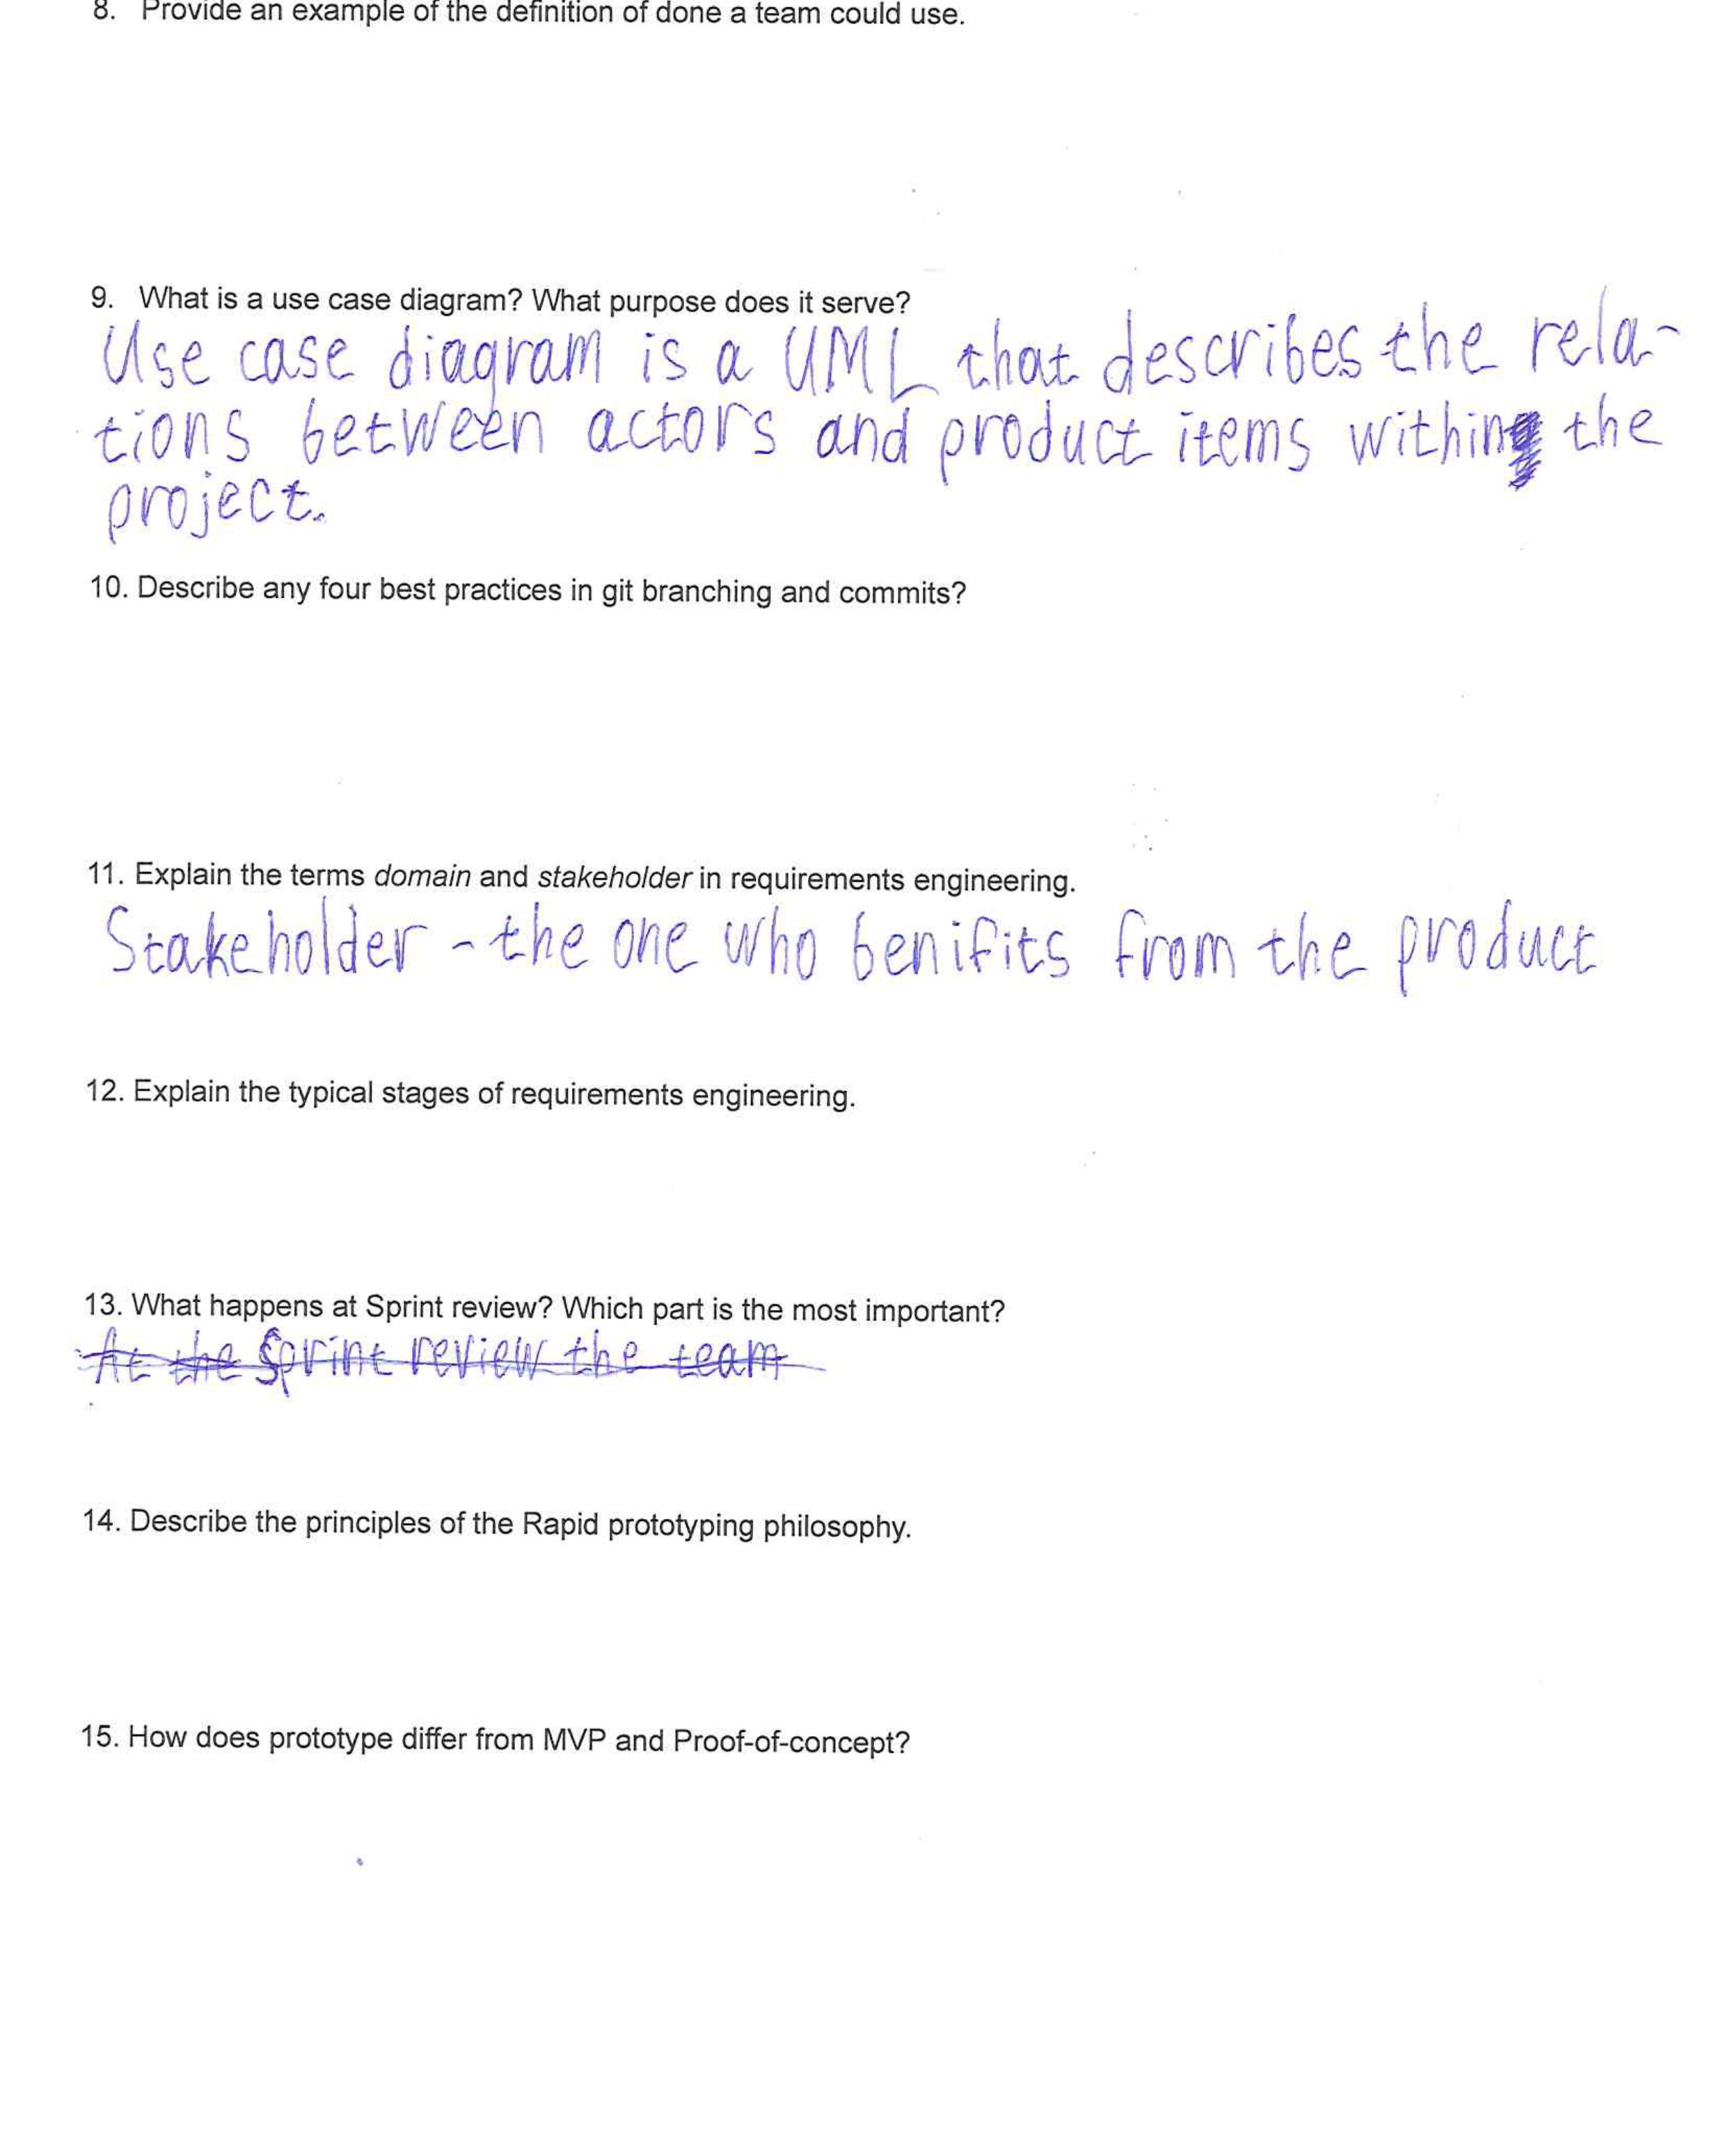 8. Provide an example of the definition of done a team could use.
9. What is a use case diagram? What purpose does it serve?
Use case diagram is a UML that describes the rela-
tions between actors and product items within the
project.
10. Describe any four best practices in git branching and commits?
11. Explain the terms domain and stakeholder in requirements engineering.
Stakeholder - the one who benifits from the product
12. Explain the typical stages of requirements engineering.
13. What happens at Sprint review? Which part is the most important?
At the Sprint review the team
14. Describe the principles of the Rapid prototyping philosophy.
15. How does prototype differ from MVP and Proof-of-concept?